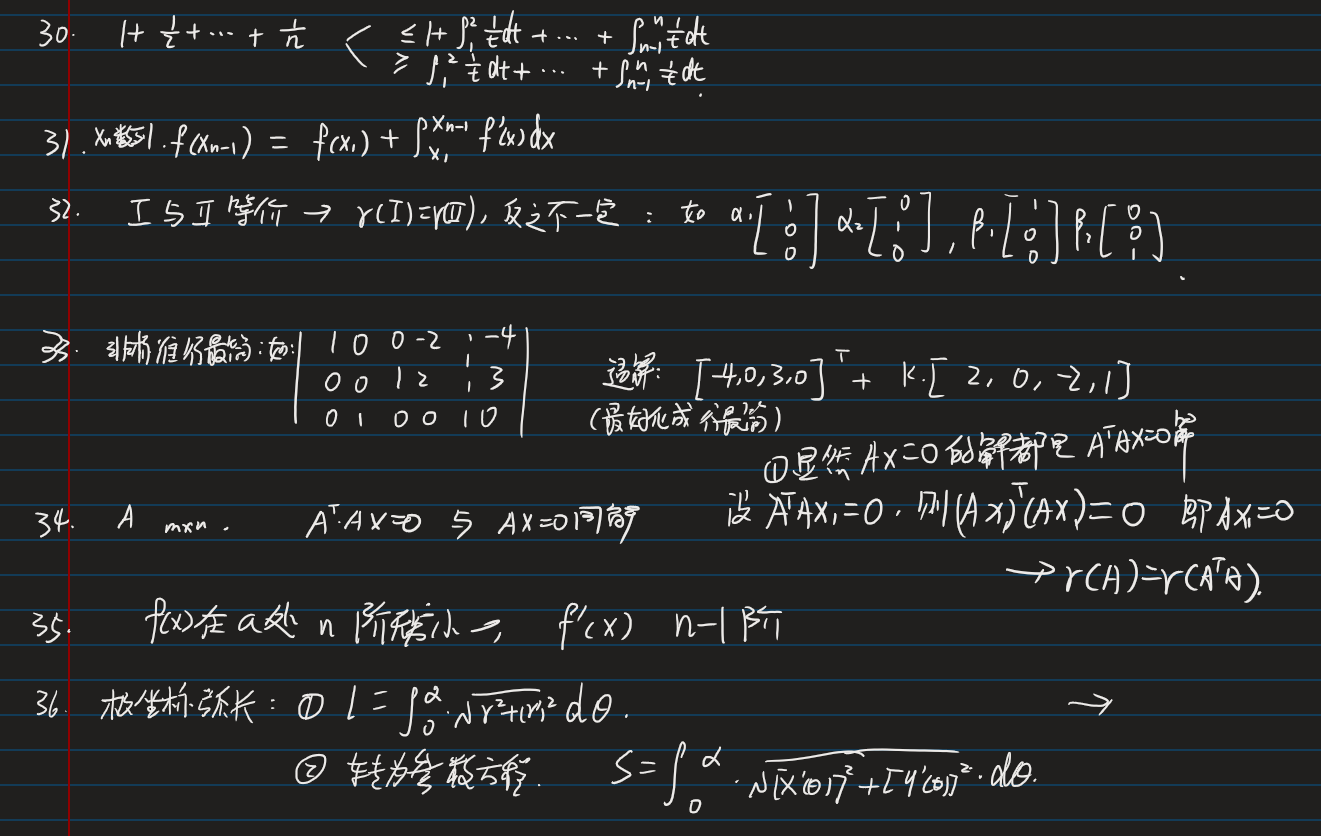 30. 1+ 1/2 +⋯+ 1/n < ≤ 1+ ∫₁² 1/t dt +⋯+ ∫ₙ₋₁ⁿ 1/t dt
≥ ∫₁² 1/t dt +⋯ + ∫ₙ₋₁ⁿ 1/t dt.
31. xₙ数列. f(xₙ₋₁) = f(x₁) + ∫_{x₁}^{xₙ₋₁} f'(x)dx
32. I 与 II 等价 → r(I)=r(II), 反之不一定 : 如 α₁[1 0 0] α₂[0 1 0], β₁[1 0 0] β₂[0 0 1].
33. 非标准行最简:如: | 1 0 0 -2 ¦ -4 |
| 0 0 1 2 ¦ 3 |
| 0 1 0 0 ¦ 0 |
通解: [-4,0,3,0]ᵀ + k·[2, 0, -2, 1]
(最好化成行最简)
①显然 AX=0 的解都是 AᵀAX=0解
34. A m×n. Aᵀ·AX=0 与 AX=0同解 设 AᵀAX₁=0. 则(AX₁)ᵀ(AX₁)=0 即AX₁=0
→ r(A)=r(AᵀA).
35. f(x)在a处 n 阶无穷小→, f'(x) n-1阶
36. 极坐标弧长: ① l = ∫₀^α·√(r²+(r')²) dθ. →
② 转为参数方程. S=∫₀^α·√([x'(θ)]²+[y'(θ)]²)·dθ.